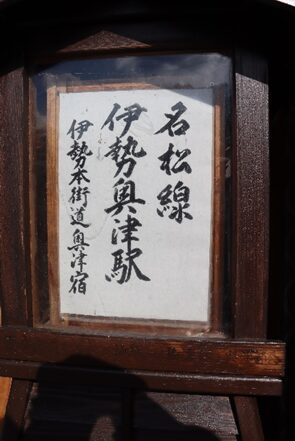 名松線
伊勢奥津駅
伊勢本街道奥津宿